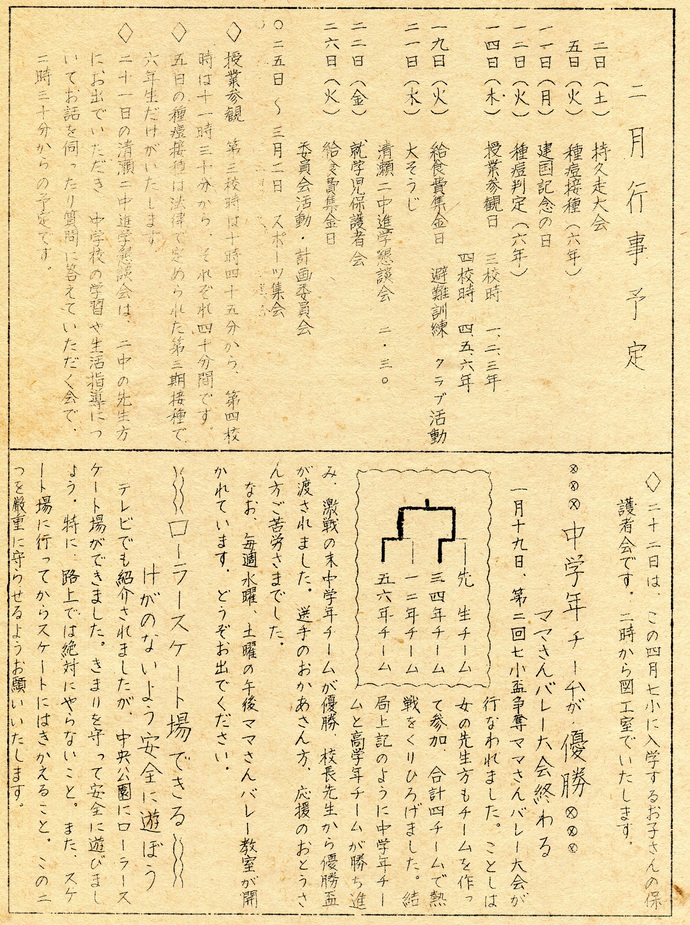 二月行事予定
二日（土）　持久走大会
五日（火）　種痘接種（六年）
一一日（月）　建国記念の日
一二日（火）　種痘判定（六年）
一四日（木）　授業参観日　三校時　一、二、三年
四校時　四、五、六年
一九日（火）　給食費集金日　避難訓練　クラブ活動
大そうじ
二一日（木）　清瀬二中進学懇談会　二・三〇
二二日（金）　就学児保護者会
二六日（火）　給食費集金日
委員会活動・計画委員会
〇二五日〜三月二日　スポーツ集会
◇　授業参観　第三校時は十時四十五分から、第四校
時は十一時三十分から、それぞれ四十分間です。
◇　五日の種痘接種は法律で定められた第三期接種で、
六年生だけがいたします。
◇　二十一日の清瀬二中進学懇談会は、二中の先生方
にお出でいただき、中学校の学習や生活指導につ
いてお話を伺ったり質問に答えていただく会で、
二時三十分からの予定です。
◇　二十二日は、この四月七小に入学するお子さんの保
護者会です。二時から図工室でいたします。
中学年チームが優勝
ママさんバレー大会終わる
一月十九日、第二回七小盃争奪ママさんバレー大会が
行なわれました。ことしは
女の先生方もチームを作っ
て参加、合計四チームで熱
戦をくりひろげました。結
局上記のように中学年チー
ムと高学年チームが勝ち進
先生チーム
三四年チーム
一二年チーム
五六年チーム
み、激戦の末中学年チームが優勝　校長先生から優勝盃
が渡されました。選手のおかあさん方、応援のおとうさ
ん方ご苦労さまでした。
なお、毎週水曜、土曜の午後ママさんバレー教室が開
かれています。どうぞお出でください。
ローラースケート場できる
けがのないよう安全に遊ぼう
テレビでも紹介されましたが、中央公園にローラース
ケート場ができました。きまりを守って安全に遊びまし
ょう。特に、路上では絶対にやらないこと。また、スケ
ート場に行ってからスケートにはきかえること。この二
つを厳重に守らせるようお願いいたします。